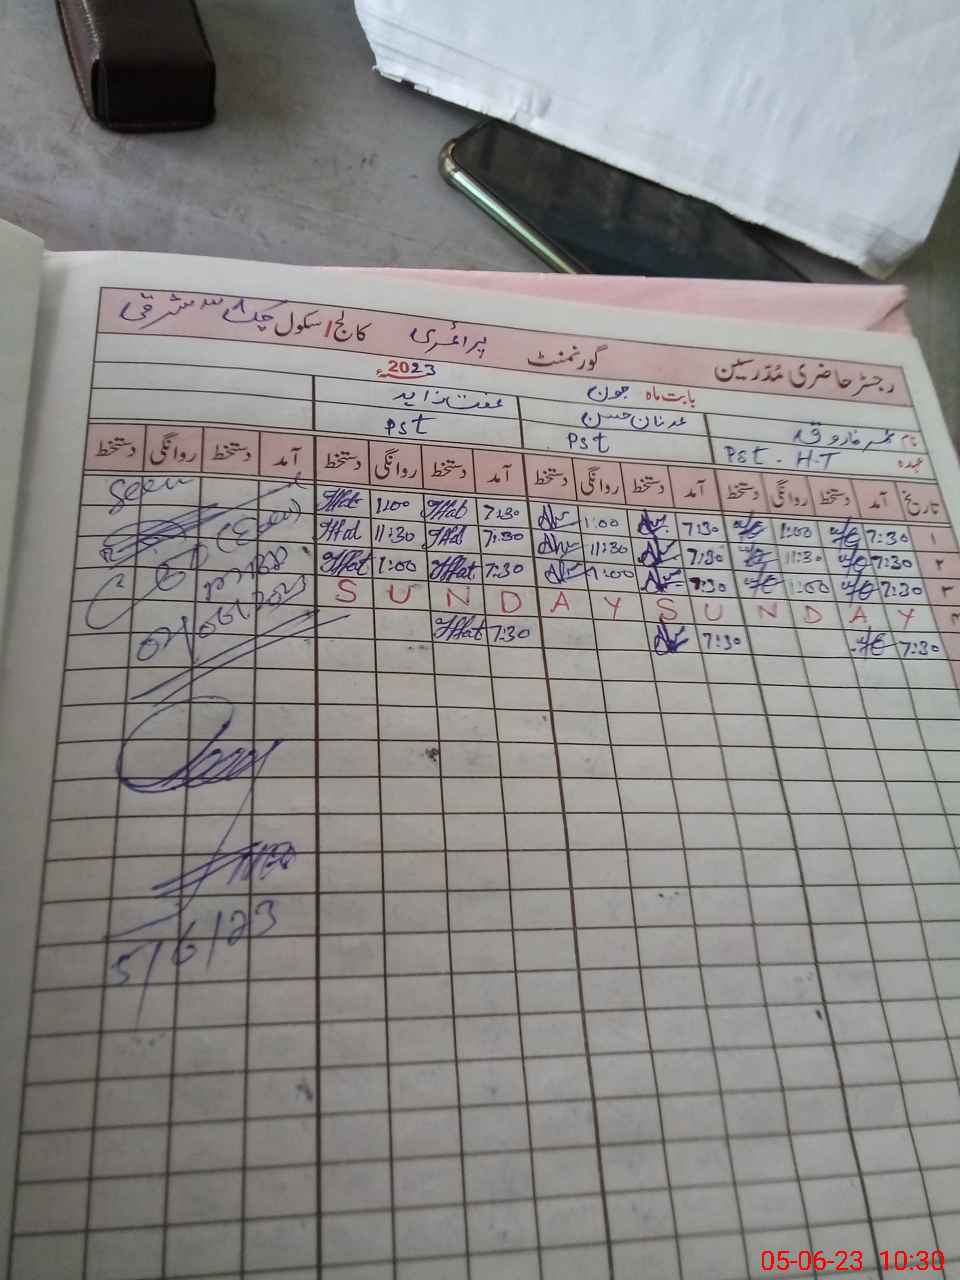 رجسٹر حاضری مُدرسین گورنمنٹ پرائمری کالج / اسکول چک ۳۸ شرقی
بابت ماہ جون 2023ء
نام عمر فاروق عدنان حسن عفت زاہد
عہدہ Pst - H.T Pst Pst
تاریخ آمد دستخط روانگی دستخط آمد دستخط روانگی دستخط آمد دستخط روانگی دستخط آمد دستخط روانگی دستخط
۱ 7:30 1:00 7:30 1:00 7:30 Iffat 1:00 Iffat
۲ 7:30 11:30 7:30 11:30 7:30 Iffat 11:30 Iffat
۳ 7:30 1:00 7:30 1:00 7:30 Iffat 1:00 Iffat
SUNDAY SUNDAY
7:30 7:30 7:30 Iffat
Seen
(Seen)
02/06/2023
5/6/23
05-06-23 10:30